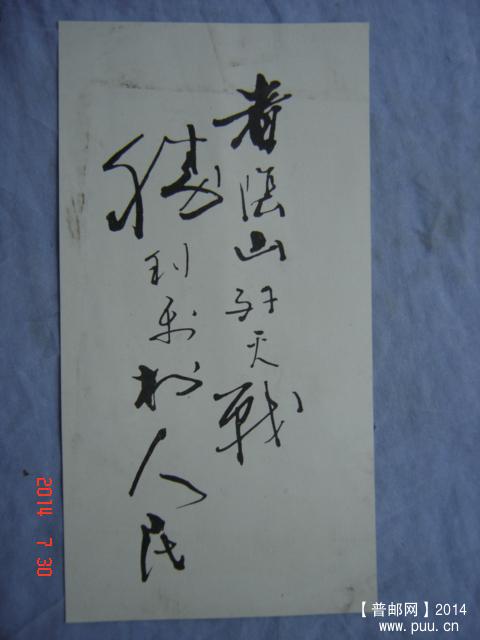 者陰山歼灭戰
勝利於人民
2014 7 30
【普邮网】2014
www.puu.cn